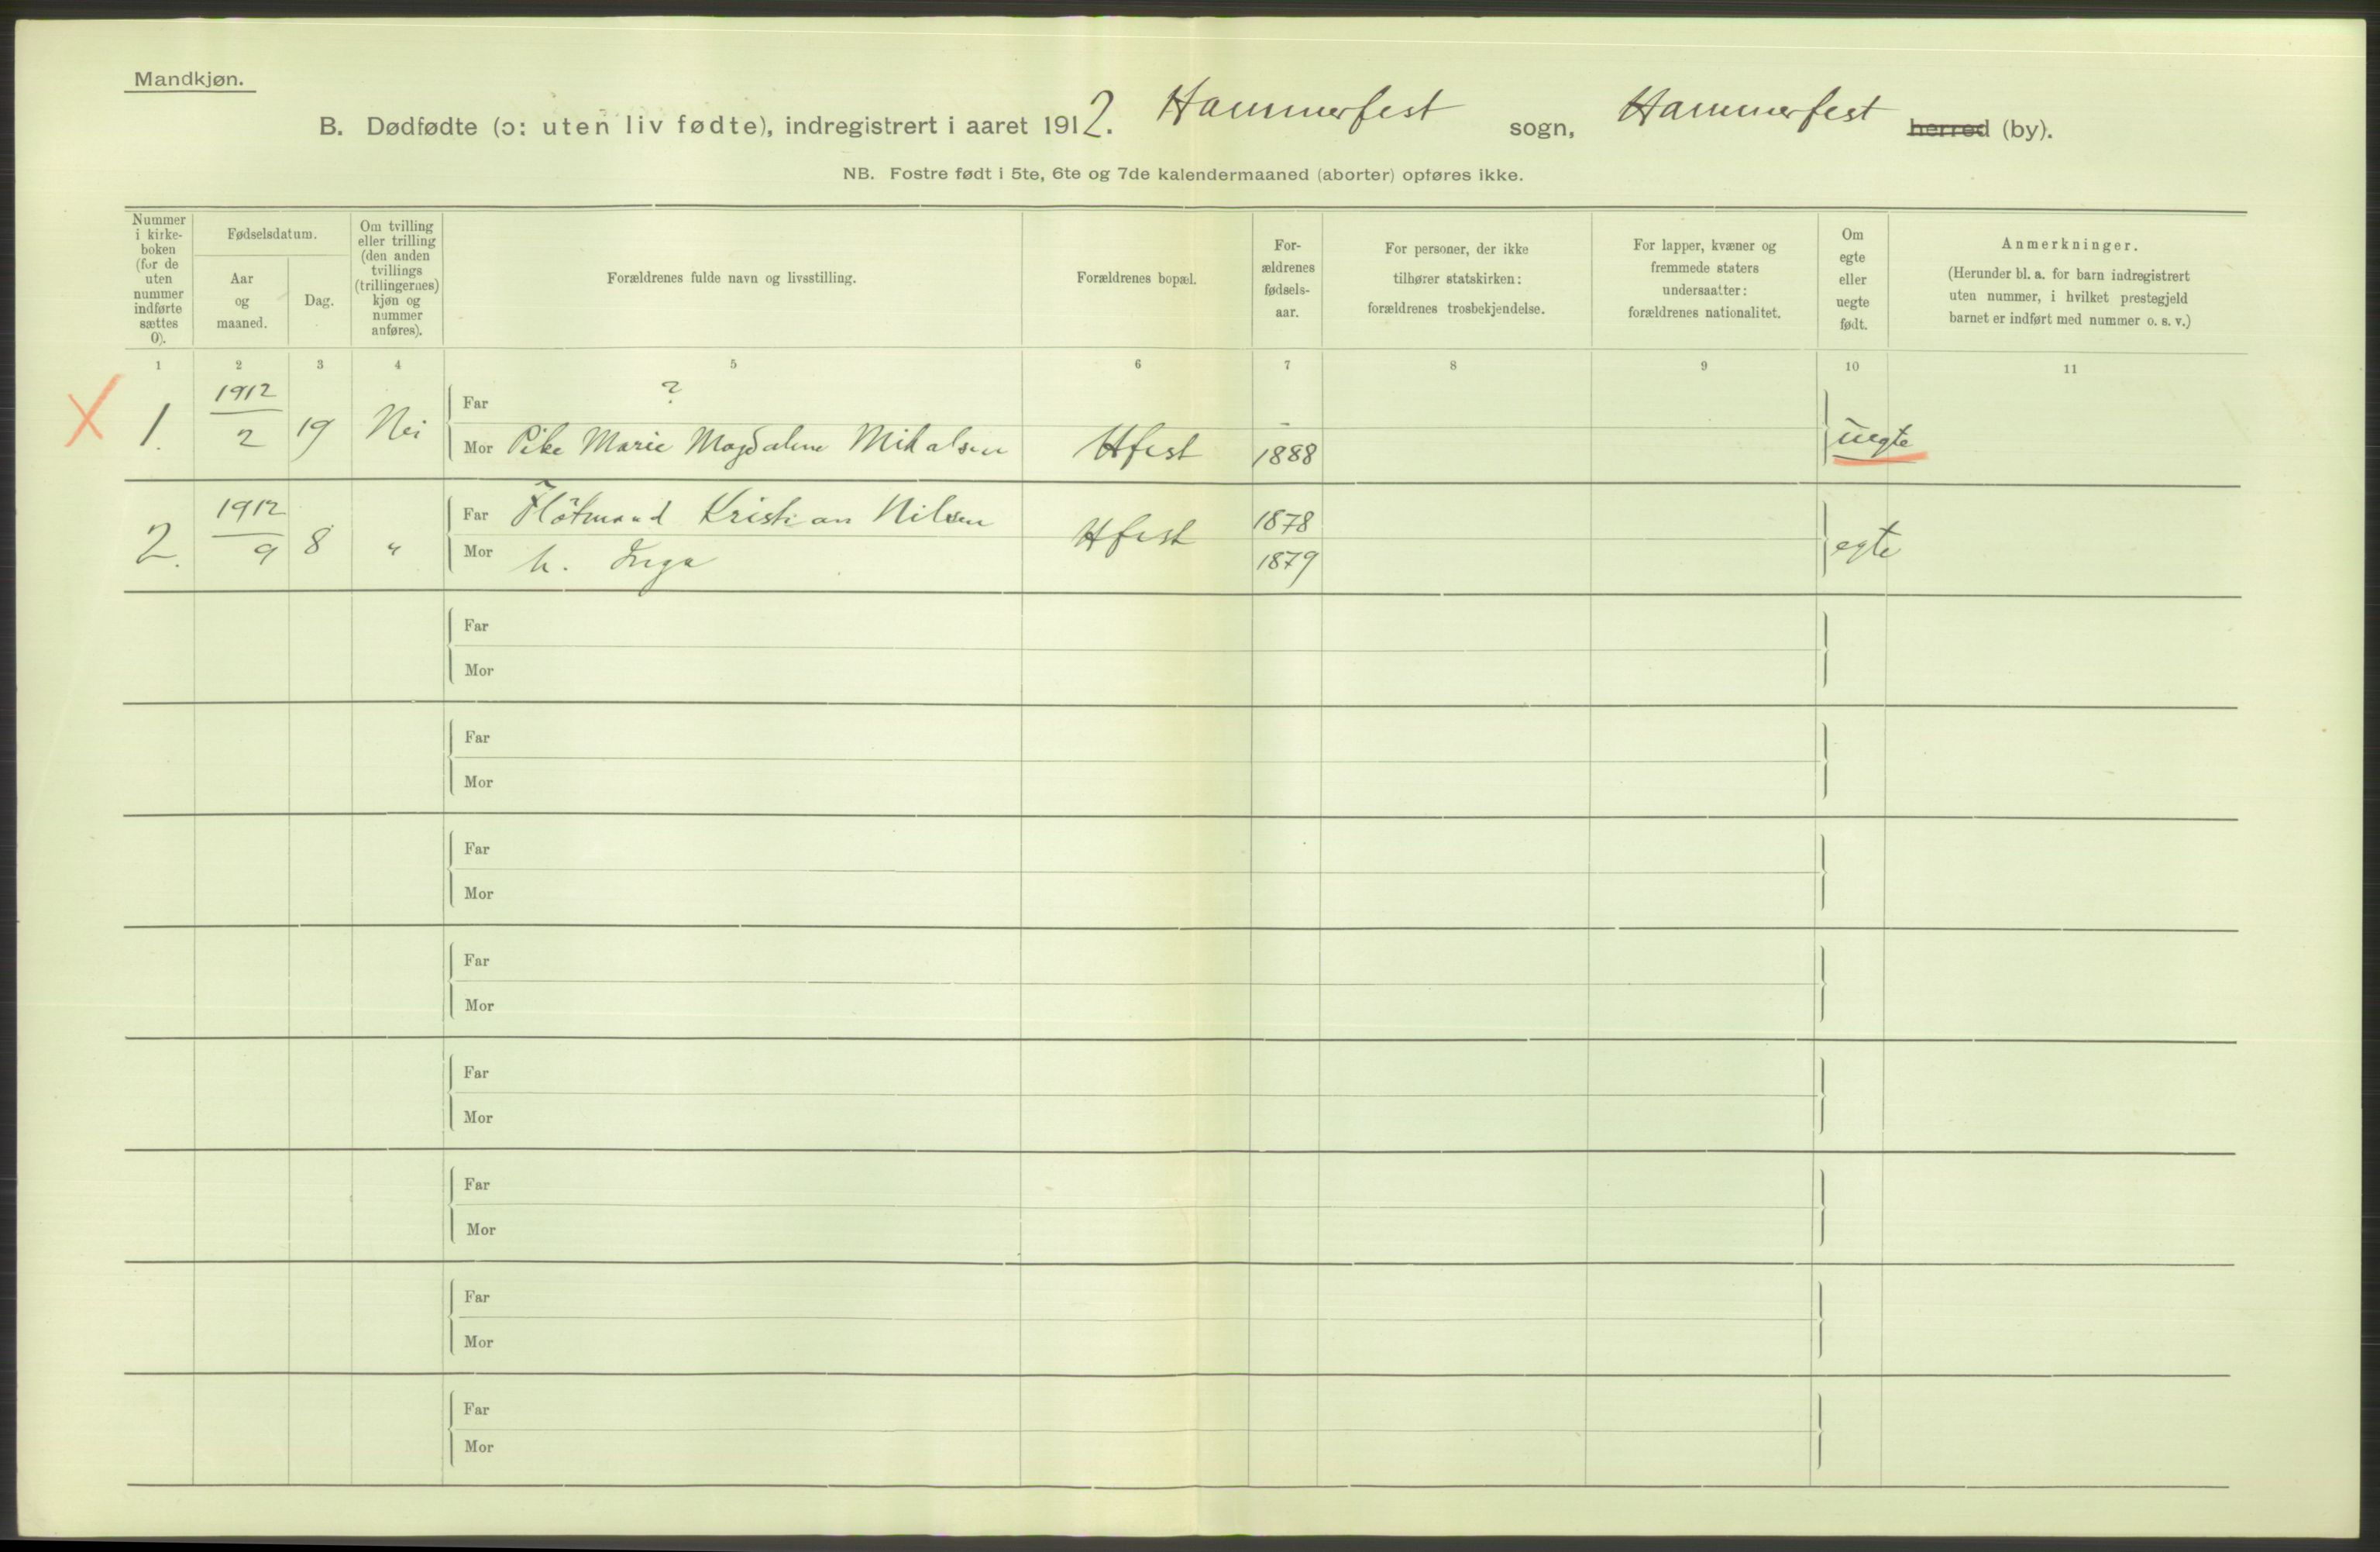 Mandkjøn.
B. Dødfødte (ɔ: uten liv fødte), indregistrert i aaret 1912. Hammerfest sogn, Hammerfest herred (by).
NB. Fostre født i 5te, 6te og 7de kalendermaaned (aborter) opføres ikke.
Nummer
i kirke-
boken
(for de
uten
nummer
indførte
sættes
0).
Fødselsdatum.
Aar
og
maaned.
Dag.
Om tvilling
eller trilling
(den anden
tvillings
(trillingernes)
kjøn og
nummer
anføres).
Forældrenes fulde navn og livsstilling.
Forældrenes bopæl.
For-
ældrenes
fødsels-
aar.
For personer, der ikke
tilhører statskirken:
forældrenes trosbekjendelse.
For lapper, kvæner og
fremmede staters
undersaatter:
forældrenes nationalitet.
Om
egte
eller
uegte
født.
Anmerkninger.
(Herunder bl. a. for barn indregistrert
uten nummer, i hvilket prestegjeld
barnet er indført med nummer o. s. v.)
1 2 3 4 5 6 7 8 9 10 11
X 1. 1912 2 19 Nei
Far ? -
Mor Pike Marie Magdalene Mikalsen Hfest 1888 uegte
2. 1912 9 8 "
Far Flötmand Kristian Nilsen Hfest 1878 egte
Mor h. Inga 1879
Far
Mor
Far
Mor
Far
Mor
Far
Mor
Far
Mor
Far
Mor
Far
Mor
Far
Mor